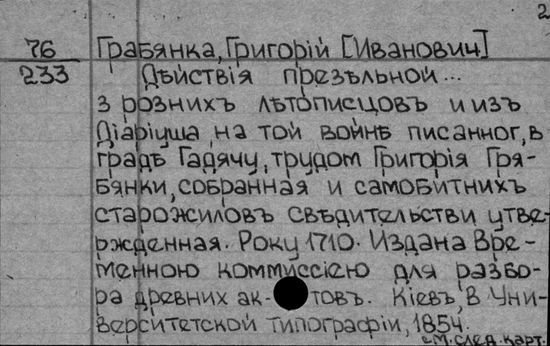 2
76
233
Грабянка, Григорій [Иванович]
Дѣйствія презѣльной...
з рознихъ лѣтописцовъ и изъ
Діаріуша, на той войнѣ писанног, в
градѣ Гадячу, трудом Григорія Гря-
бянки, собранная и самобитнихъ
старожиловъ свѣдительстви утве-
ржденная. Року 1710. Издана Вре-
менною коммиссіею для разбо-
ра древних ак- товъ. Кіевъ, в Уни-
верситетской типографіи, 1854.
см. след. карт.